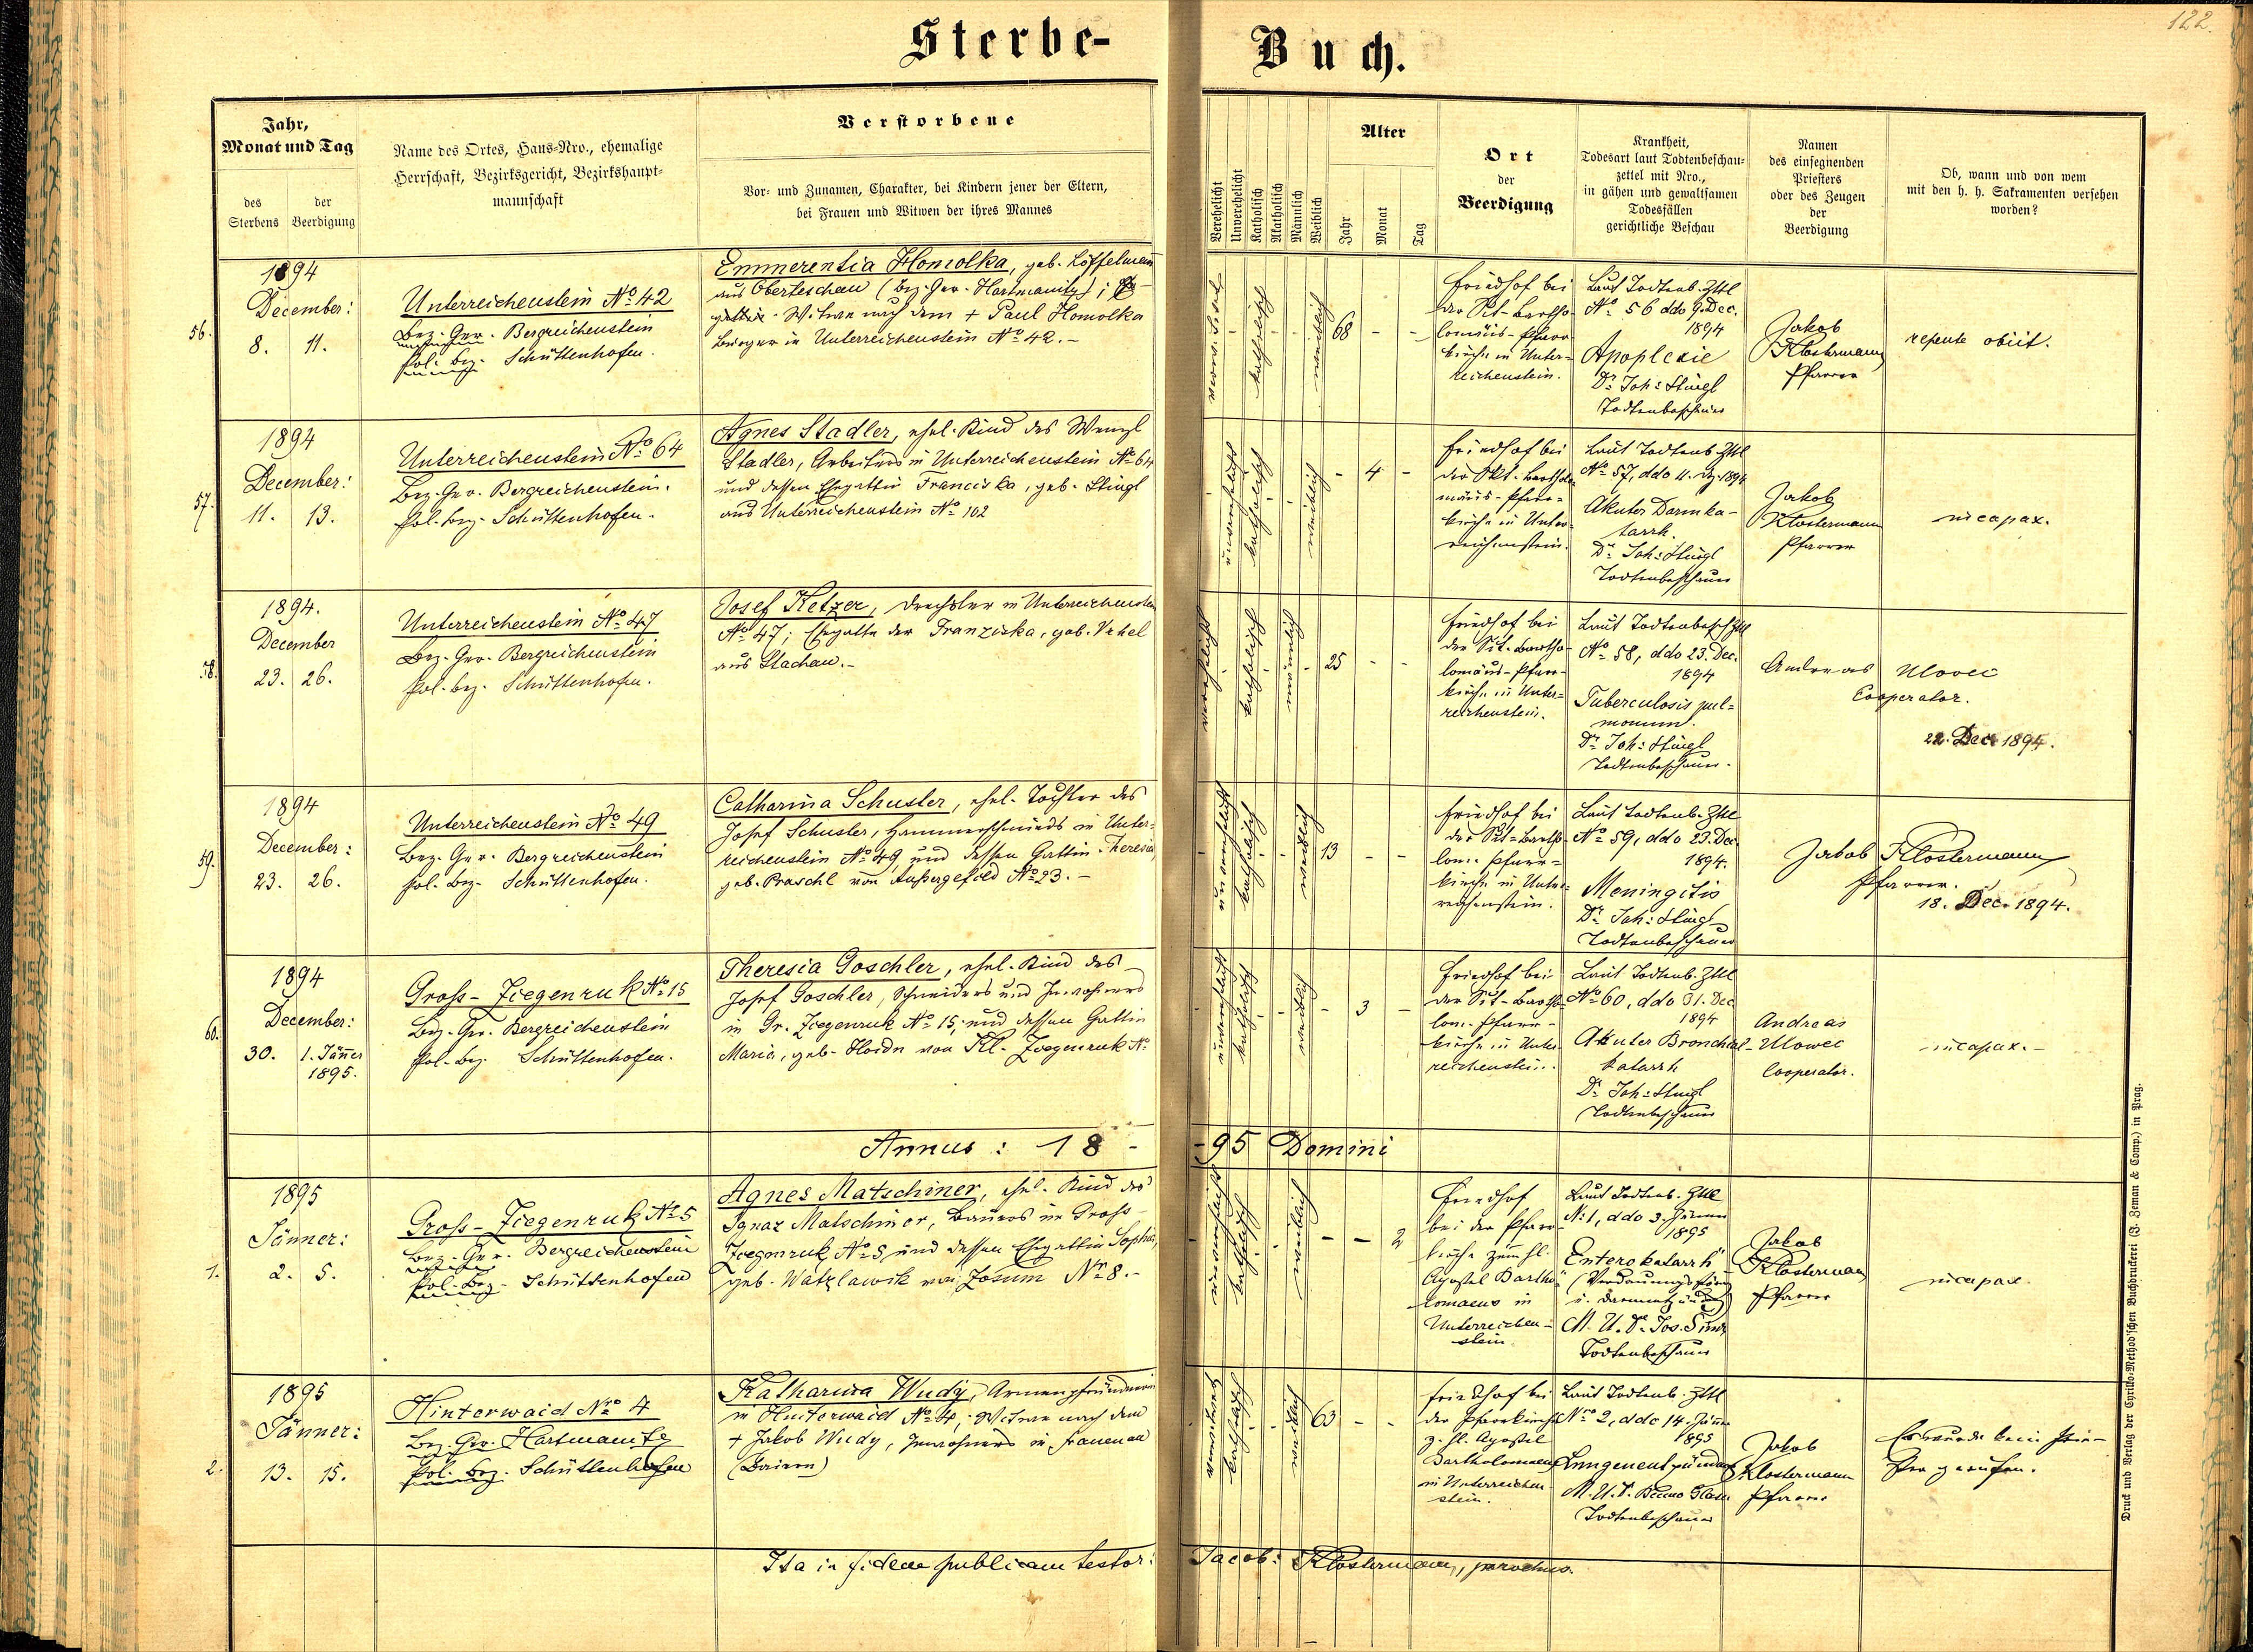 122.
Sterbe-Buch.
Jahr,
Monat und Tag
des Sterbens
der Beerdigung
Name des Ortes, Haus-Nro., ehemalige
Herrschaft, Bezirksgericht, Bezirkshaupt=
mannschaft
Verstorbene
Vor- und Zunamen, Charakter, bei Kindern jener der Eltern,
bei Frauen und Witwen der ihres Mannes
Verehelicht
Unverehelicht
Katholisch
Akatholisch
Männlich
Weiblich
Alter
Jahr
Monat
Tag
Ort
der
Beerdigung
Krankheit,
Todesart laut Todtenbeschau=
zettel mit Nro.,
in gähen und gewaltsamen
Todesfällen
gerichtliche Beschau
Namen
des einsegnenden
Priesters
oder des Zeugen
der
Beerdigung
Ob, wann und von wem
mit den h. h. Sakramenten versehen
worden?
56.
1894
December:
8. 11.
Unterreichenstein No 42
Bez. Ger. Bergreichenstein
Pol. Bez. Schüttenhofen.
Emmerentia Homolka, geb. Löffelmann
aus Oberteschau (Bez. Ger. Hartmanitz);
Witwe nach dem + Paul Homolka
Bürger in Unterreichenstein No 42.-
katholisch
weiblich
68
Friedhof bei
der Sct. Bartho-
lomäus-Pfarr-
kirche in Unter-
reichenstein.
Laut Todtenb. Zttl
No 56 ddo 9. Dec.
1894
Apoplexie
Dr Joh: Stingl
Todtenbeschauer
Jakob
Klostermann
Pfarrer
repente obiit.
57.
1894
December:
11. 13.
Unterreichenstein No 64
Bez. Ger. Bergreichenstein.
Pol. Bez. Schüttenhofen.
Agnes Stadler, ehel. Kind des Wenzl
Stadler, Arbeiters in Unterreichenstein No 64
und dessen Ehegattin Franciska, geb. Stingl
aus Unterreichenstein No 102
unverehelicht
katholisch
weiblich
4
Friedhof bei
der Skt. Bartholo-
mäus-Pfarr-
kirche in Unter-
reichenstein.
Laut Todtenb. Zttl
No 57, ddo 11. Dez. 1894
Akuter Darmka-
tarrh.
Dr Joh: Stingl
Todtenbeschauer
Jakob
Klostermann
Pfarrer
incapax.
58.
1894.
December
23. 26.
Unterreichenstein No 47
Bez. Ger. Bergreichenstein
Pol. Bez. Schüttenhofen.
Josef Ketzer, Drechsler in Unterreichenstein
No 47; Ehegatte der Franziska, geb. Vrhel
aus Stachau.-
verehelicht
katholisch
männlich
25
Friedhof bei
der Sct. Bartho-
lomäus-Pfarr-
kirche in Unter-
reichenstein.
Laut Todtenbesch. Zttl
No 58, ddo 23. Dec.
1894
Tuberculosis pul=
monum.
Dr Joh: Stingl
Todtenbeschauer.
Andreas Ulovec
Cooperator.
22. Dec. 1894.
59.
1894
December:
23. 26.
Unterreichenstein No 49
Bez. Ger. Bergreichenstein
Pol. Bez. Schüttenhofen.
Catharina Schuster, ehel. Tochter des
Josef Schuster, Hammerschmieds in Unter-
reichenstein No 49, und dessen Gattin Theresia,
geb. Praschl von Außergefild No 23.-
unverehelicht
katholisch
weiblich
13
Friedhof bei
der Sct-Bartho-
lom. Pfarr=
kirche in Unter-
reichenstein.
Laut Todtenb. Zttl
No 59, ddo 23. Dec
1894.
Meningitis
Dr Joh: Stingl
Todtenbeschauer
Jakob Klostermann
Pfarrer.
18. Dec. 1894.
60.
1894
December:
30. 1. Jänner
1895.
Gross-Ziegenruk No 15
Bez. Ger. Bergreichenstein
Pol. Bez. Schüttenhofen.
Theresia Goschler, ehel. Kind des
Josef Goschler, Schneiders und Inwohners
in Gr. Ziegenruk No 15, und dessen Gattin
Maria, geb. Hoidn von Kl. Ziegenruk No
unverehelicht
katholisch
weiblich
3
Friedhof bei
der Sct-Bartho-
lom. Pfarr-
kirche in Unter-
reichenstein.
Laut Todtenb. Zttl
No 60, ddo 31. Dec
1894
Akuter Bronchial-
katarrh
Dr Joh: Stingl
Todtenbeschauer
Andreas
Ulowec
Cooperator.
incapax.-
Annus: 18--95 Domini
1.
1895
Jänner:
2. 5.
Gross-Ziegenruk No 5
Bez. Ger. Bergreichenstein
Pol. Bez. Schüttenhofen
Agnes Matschiner, ehel. Kind des
Ignaz Matschiner, Bauers in Gross-
Ziegenruk No 5 und dessen Ehegattin Sophia,
geb. Watzlawik von Zosum Nr 8.-
unverehelicht
katholisch
weiblich
2
Friedhof
bei der Pfarr-
kirche zum hl.
Apostel Bartho-
lomaeus in
Unterreichen-
stein
Laut Todtenb. Zttl
N: 1, ddo 3. Jänner
1895
Enterokatarrh
M. U. Dr. Jos.
Todtenbeschauer
Jakob
Klostermann
Pfarrer
incapax.
2.
1895
Jänner:
13. 15.
Hinterwaid Nro 4
Bez. Ger. Hartmanitz
Pol. Bez. Schüttenhofen
Katharina Wudy, Armenpfründnerin
in Hinterwaid No 4, Witwe nach dem
+ Jakob Wudy, Inwohners in Frauenau
(Baiern)
katholisch
63
Friedhof bei
der Pfarrkirche
z. hl. Apostel
Bartholomaeus
in Unterreichen-
stein.
Laut Todtenb. Zttl
Nro 2, ddo 14. Jänner
1895
Lungenentzündung
M. U. D. Benno
Todtenbeschauer
Jakob
Klostermann
Pfarrer
Es wurde kein Prie-
ster gerufen.
Ita in fidem publicam testor: Jacob: Klostermann, parochus.
Druck und Verlag der Cyrillo-Method'schen Buchdruckerei (J. Zeman & Comp.) in Prag.